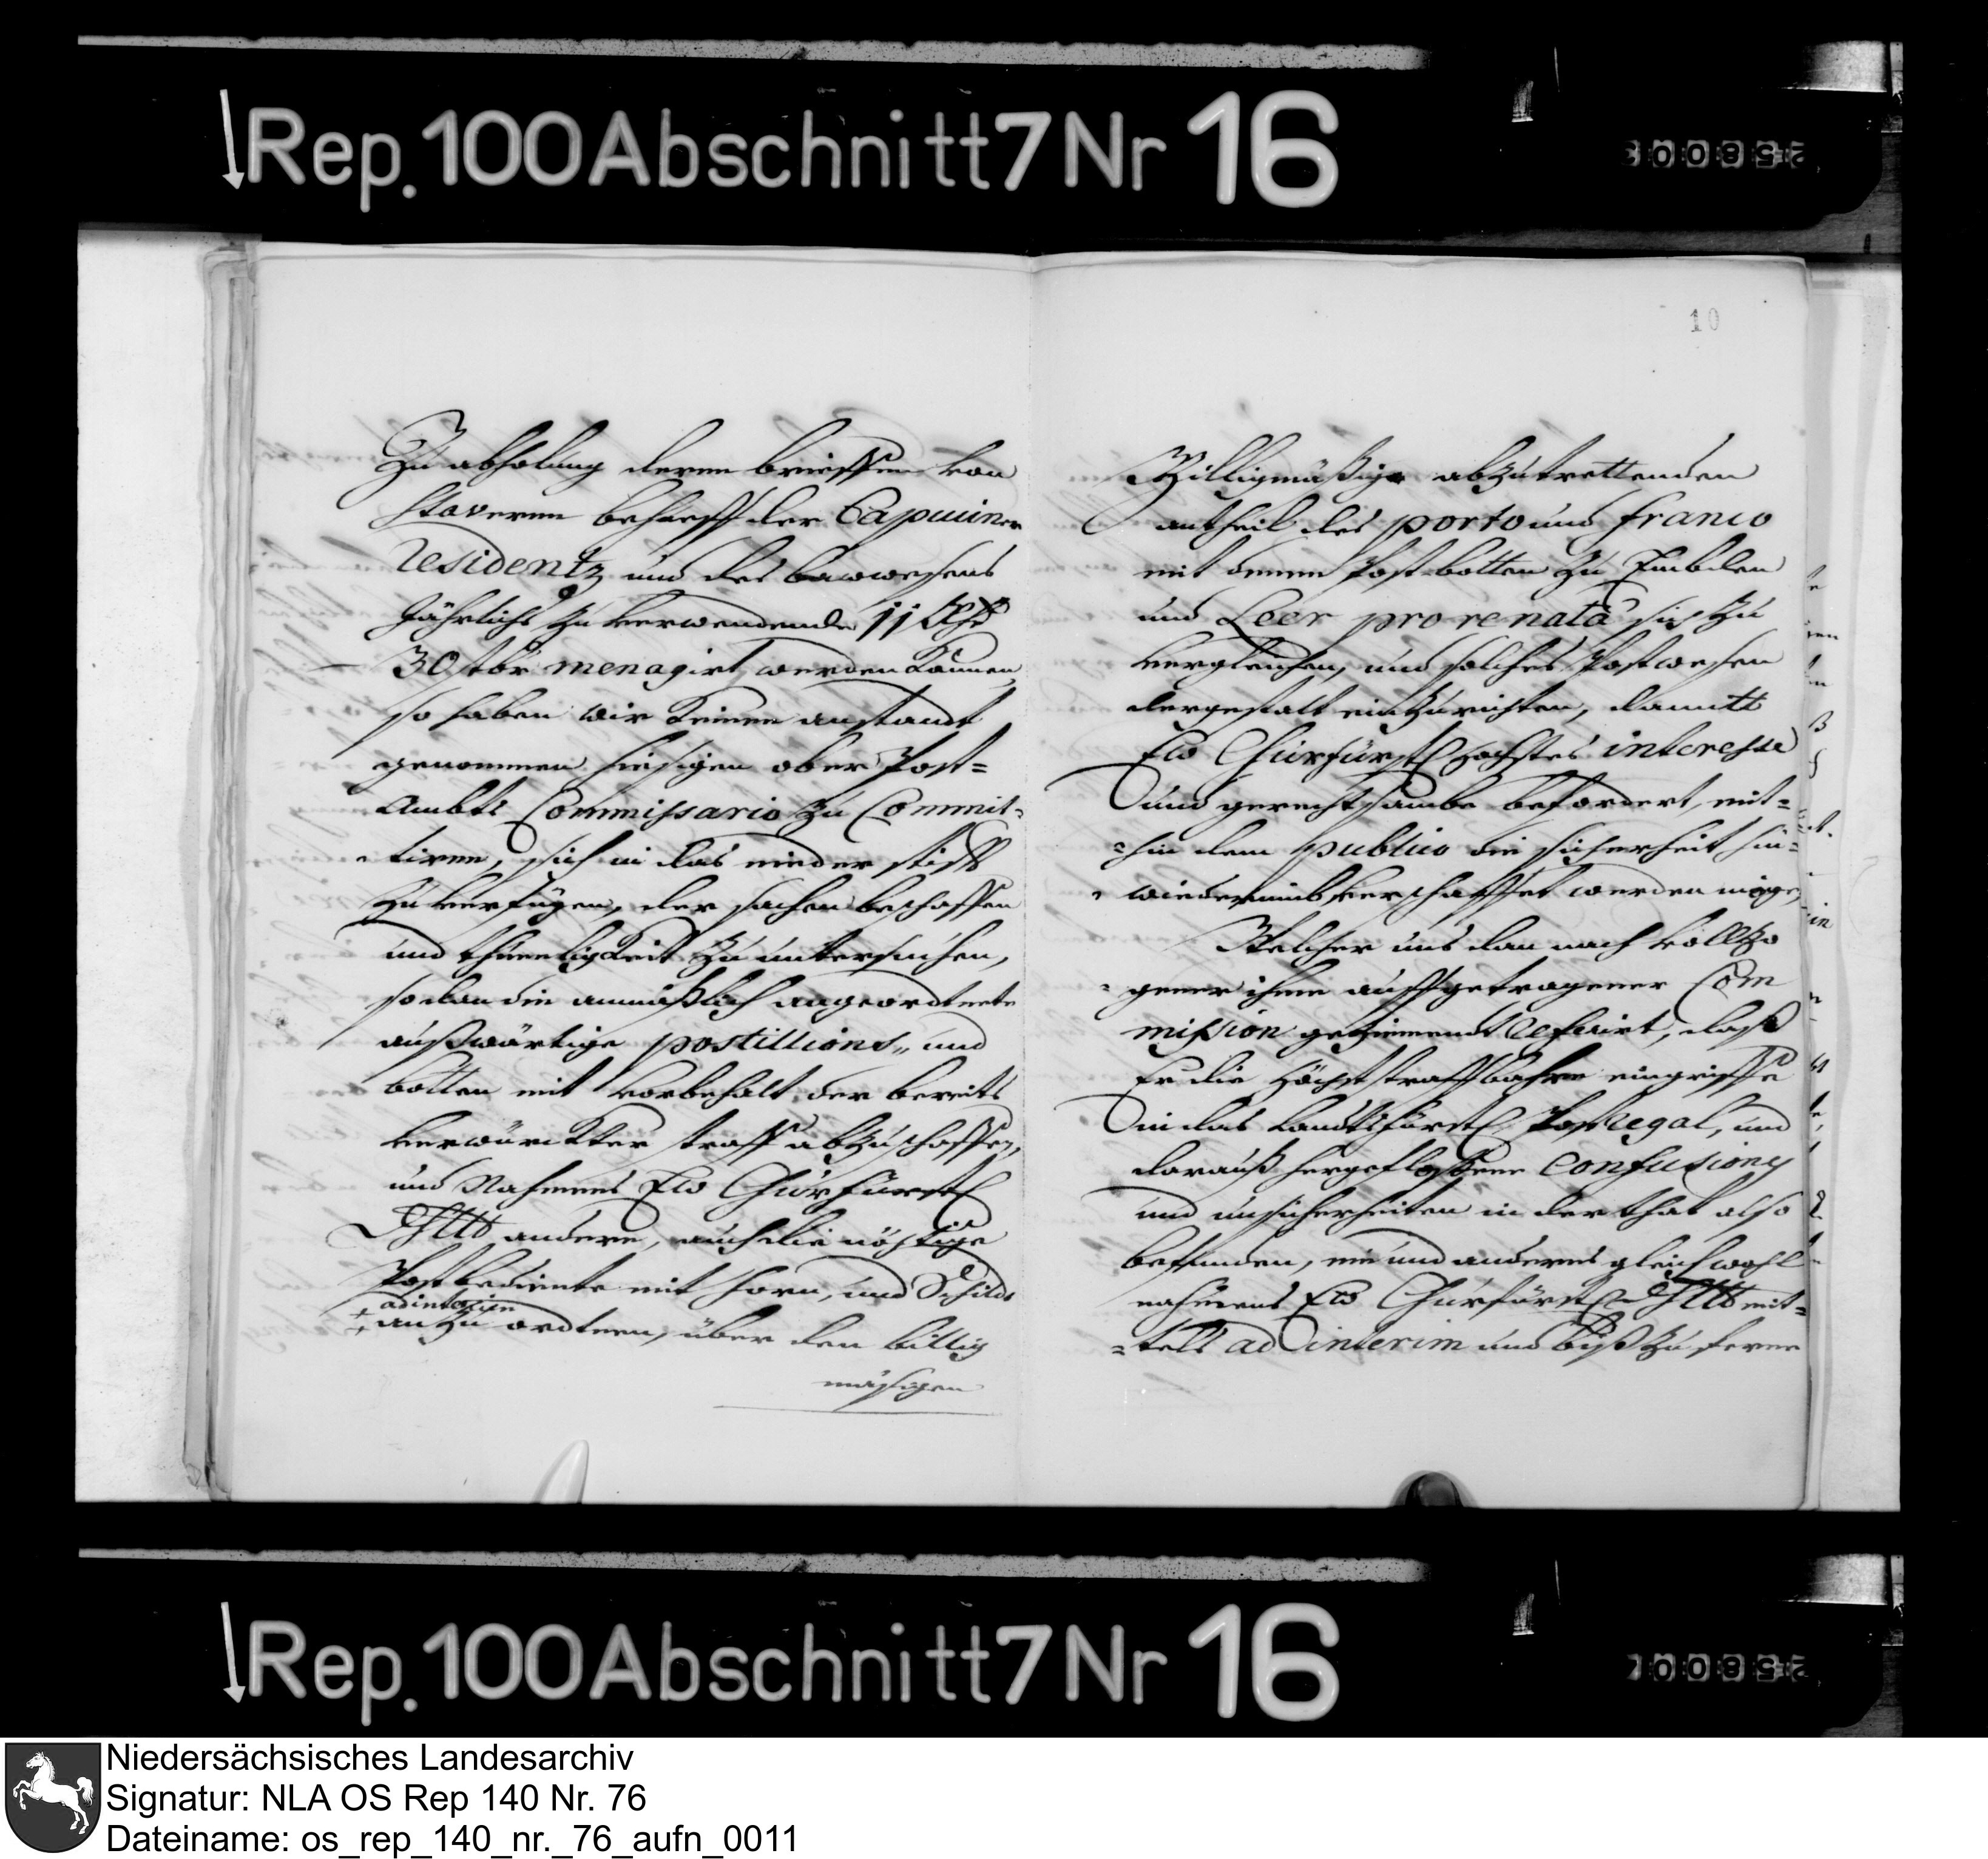 Rep. 100 Abschnitt 7 Nr 16
Zu abholung deren brieffen von
Staveren behueff der Capuciner
residentz und des bauwesens
Jährlichs zu verwendende 11 Rthlr
30 stbr menagirt werden können,
so haben wir keinen anstandt
genommen hiesigen ober Post=
Ambts Commissario zu Commit=
tiren, sich in das nieder stifft
zu verfügen, der sachen beschaffen
und thuenligkeit zu untersuchen,
sodan die anmaßlich angeordtnete
außwärtige postillions, und
botten mit vorbehalt der bereits
verwürckter straff abzuschaffen,
und Nahmens Ew Churfürstl
Dhltt andere, auch die nöhtige
Postbediente mit horn, und Schildt
ad interim
anzu ordtnen, über den billig
mäsigen
10
Billigmäßige abzutrettenden
antheil des porto und franco
mit denen Post botten zu Embden
und Leer pro re nata sich zu
vergleichen, und solches Postwesen
dergestalt einzurichten, damitt
Ew Churfürstl höchstes interesse
und gerechtsambe befordert, mit=
=hin dem publico die sicherheit hin=
wiederumb verschaffet werden möge,
Welcher uns dan nach vollzo
gener ihme auffgetragener Com
mission geziemend referirt, daß
Er die höchst straffbahre eingriffe
in das Landtsfürstl Postregal, und
darauß hergeflossene confusiones
und unsicherheiten in der that also
befunden, ein und anderes gleichwohl
nahmens Ew Churfürstl Dhltt mit=
=tels ad interim und biß zu ferne
Rep. 100 Abschnitt 7 Nr 16
Niedersächsisches Landesarchiv
Signatur: NLA OS Rep 140 Nr. 76
Dateiname: os_rep_140_nr._76_aufn_0011